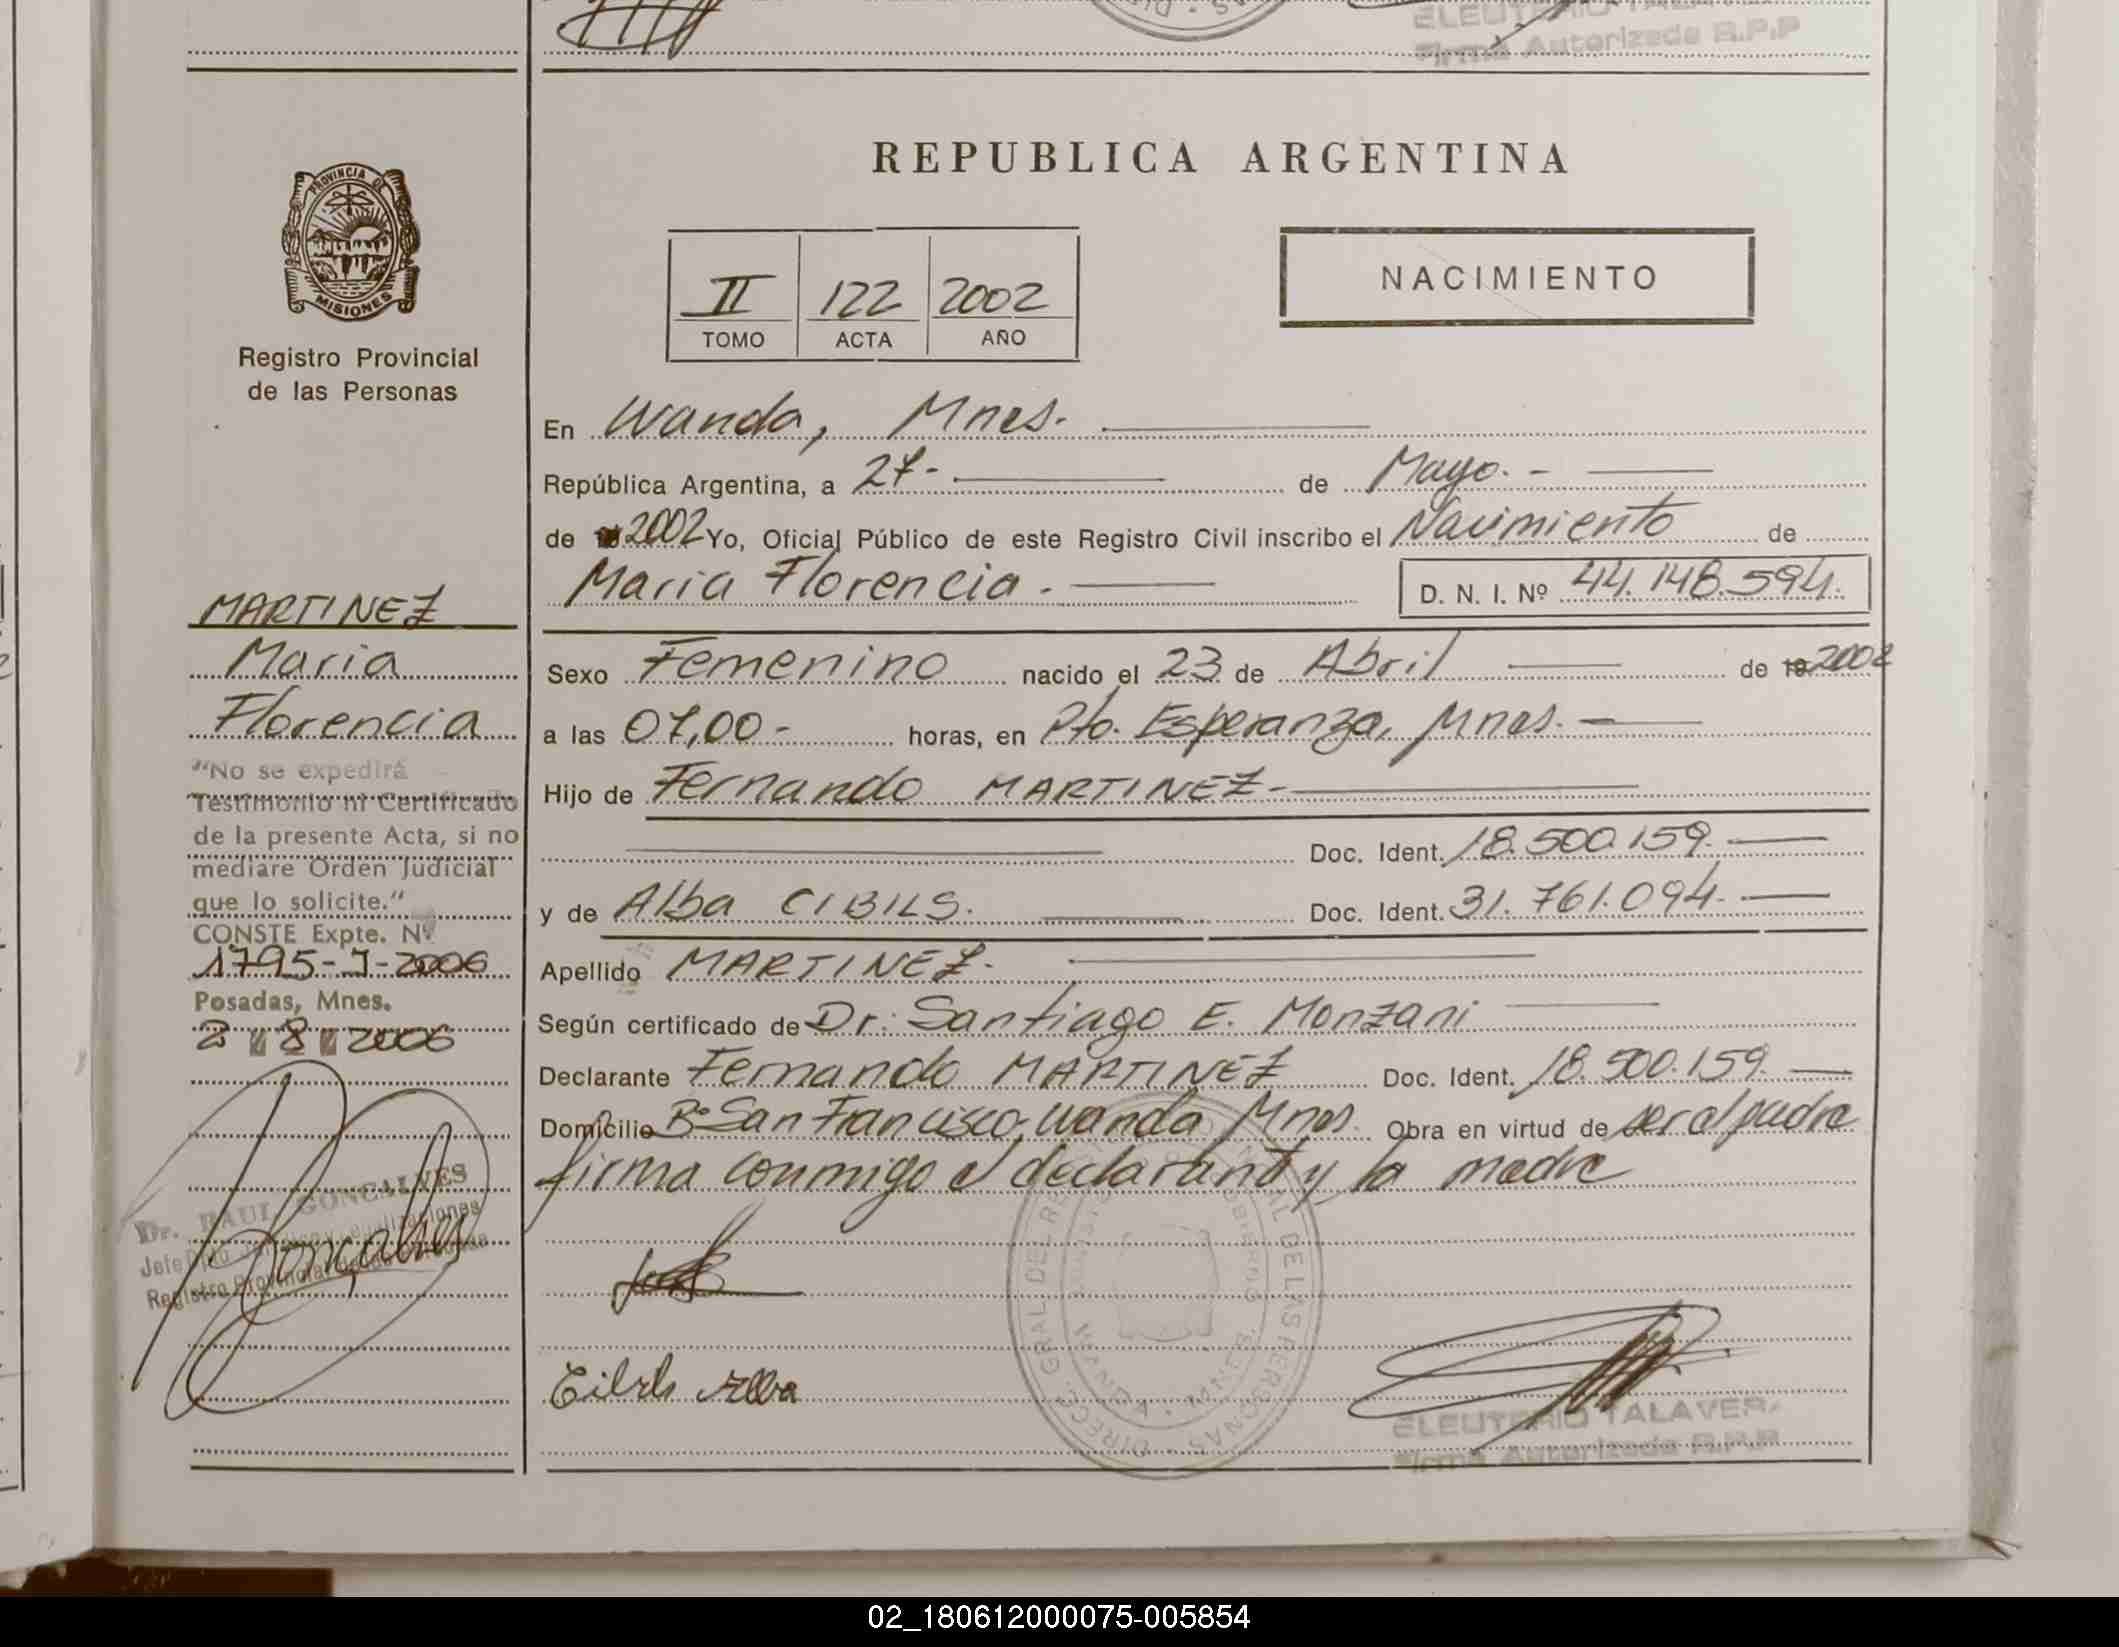 ELEUTERIO TALAVE
Firma Autorizada R.P.P
PROVINCIA DE
MISIONES
Registro Provincial
de las Personas
MARTINEZ
Maria
Florencia
"No se expedirá
Testimonio ni Certificado
de la presente Acta, si no
mediare Orden Judicial
que lo solicite."
CONSTE Expte. Nº
1795-J-2006
Posadas, Mnes.
2 8 2006
Dr. RAUL GONCALVES
Registro Provincial de las
REPUBLICA ARGENTINA
II 122 2002
TOMO ACTA AÑO
NACIMIENTO
En Wanda, Mnes.
República Argentina, a 27- de Mayo.-
de 2002 Yo, Oficial Público de este Registro Civil inscribo el Nacimiento de
Maria Florencia.- D. N. I. Nº 44.148.594.
Sexo Femenino nacido el 23 de Abril de 19 2002
a las 07,00- horas, en Pto. Esperanza, Mnes.-
Hijo de Fernando MARTINEZ-
Doc. Ident. 18.500.159.
y de Alba CIBILS. Doc. Ident. 31.761.094.
Apellido MARTINEZ-
Según certificado de Dr. Santiago E. Monzani
Declarante Fernando MARTINEZ Doc. Ident. 18.500.159.
Domicilio Bº San Francisco, Wanda Mnes. Obra en virtud de ser el padre
firma conmigo el declarante y la madre
Cibils Alba
DIRECC. GRAL DEL REGISTRO PROVINCIAL DE LAS PERSONAS
ELEUTERIO TALAVER
Firma Autorizada R.P.P
02_180612000075-005854